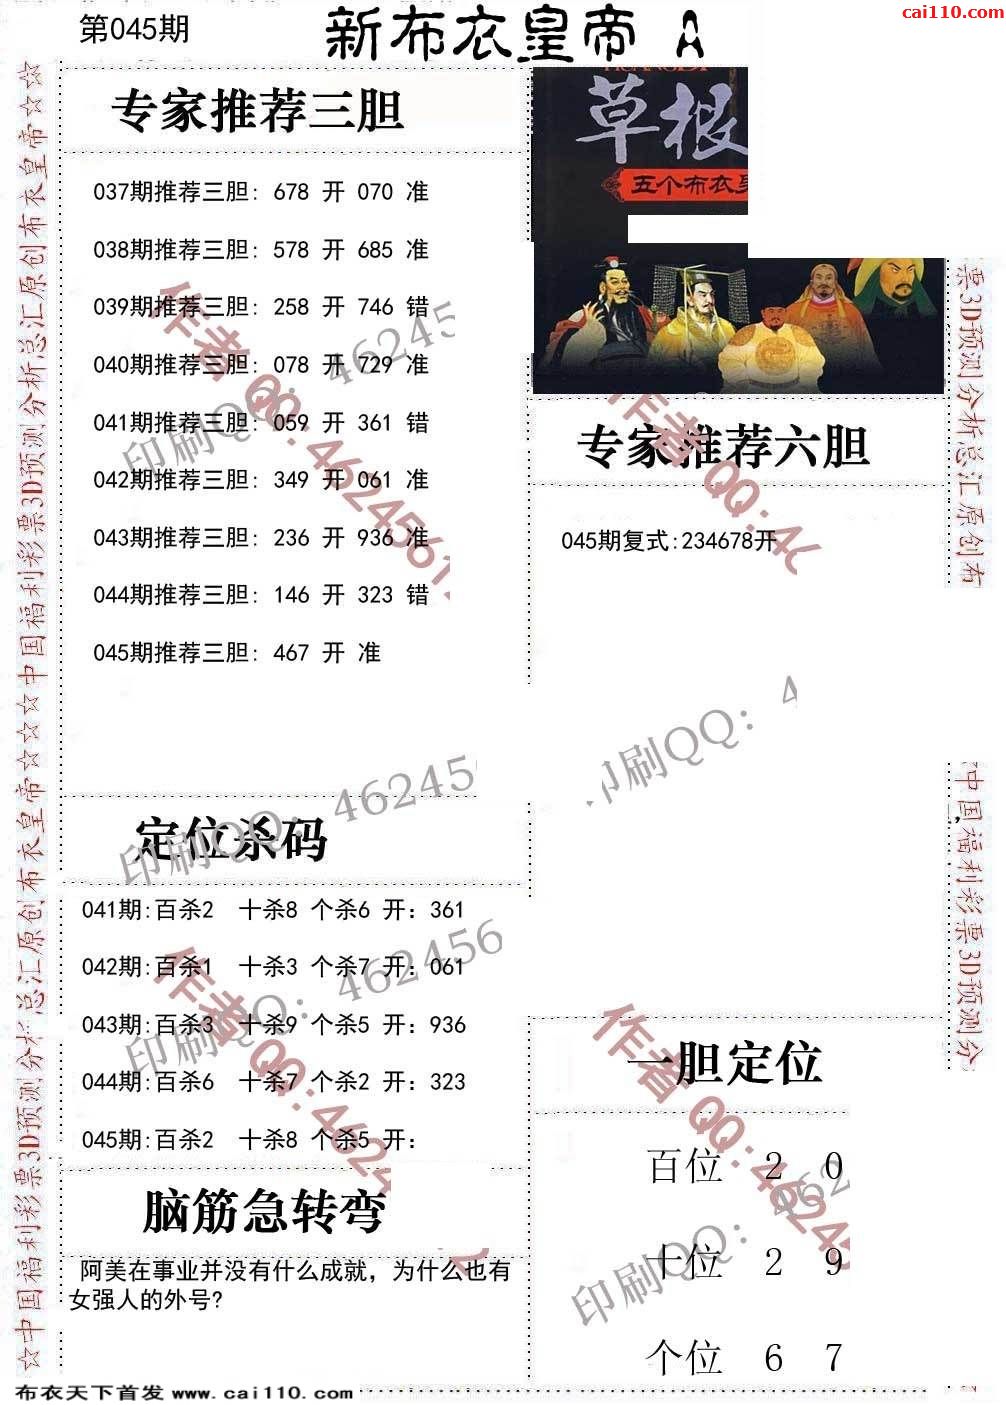 第045期
新布衣皇帝 A
cai110.com
专家推荐三胆
037期推荐三胆: 678 开 070 准
038期推荐三胆: 578 开 685 准
039期推荐三胆: 258 开 746 错
040期推荐三胆: 078 开 729 准
041期推荐三胆: 059 开 361 错
042期推荐三胆: 349 开 061 准
043期推荐三胆: 236 开 936 准
044期推荐三胆: 146 开 323 错
045期推荐三胆: 467 开 准
草根
五个布衣
专家推荐六胆
045期复式:234678开
定位杀码
041期:百杀2 十杀8 个杀6 开: 361
042期:百杀1 十杀3 个杀7 开: 061
043期:百杀3 十杀9 个杀5 开: 936
044期:百杀6 十杀7 个杀2 开: 323
045期:百杀2 十杀8 个杀5 开:
脑筋急转弯
阿美在事业并没有什么成就，为什么也有
女强人的外号?
一胆定位
百位 2 0
十位 2 9
个位 6 7
☆中国福利彩票3D预测分析总汇原创布衣皇帝☆☆☆中国福利彩票3D预测分析总汇原创布衣皇帝☆☆
票3D预测分析总汇原创布
中国福利彩票3D预测分
作者 QQ:462456
印刷QQ: 46245
作者 QQ:46
印刷QQ: 4
印刷QQ: 46245
作者 QQ:4624
印刷QQ: 462456
作者 QQ:46245
印刷QQ: 462
布衣天下首发 www.cai110.com